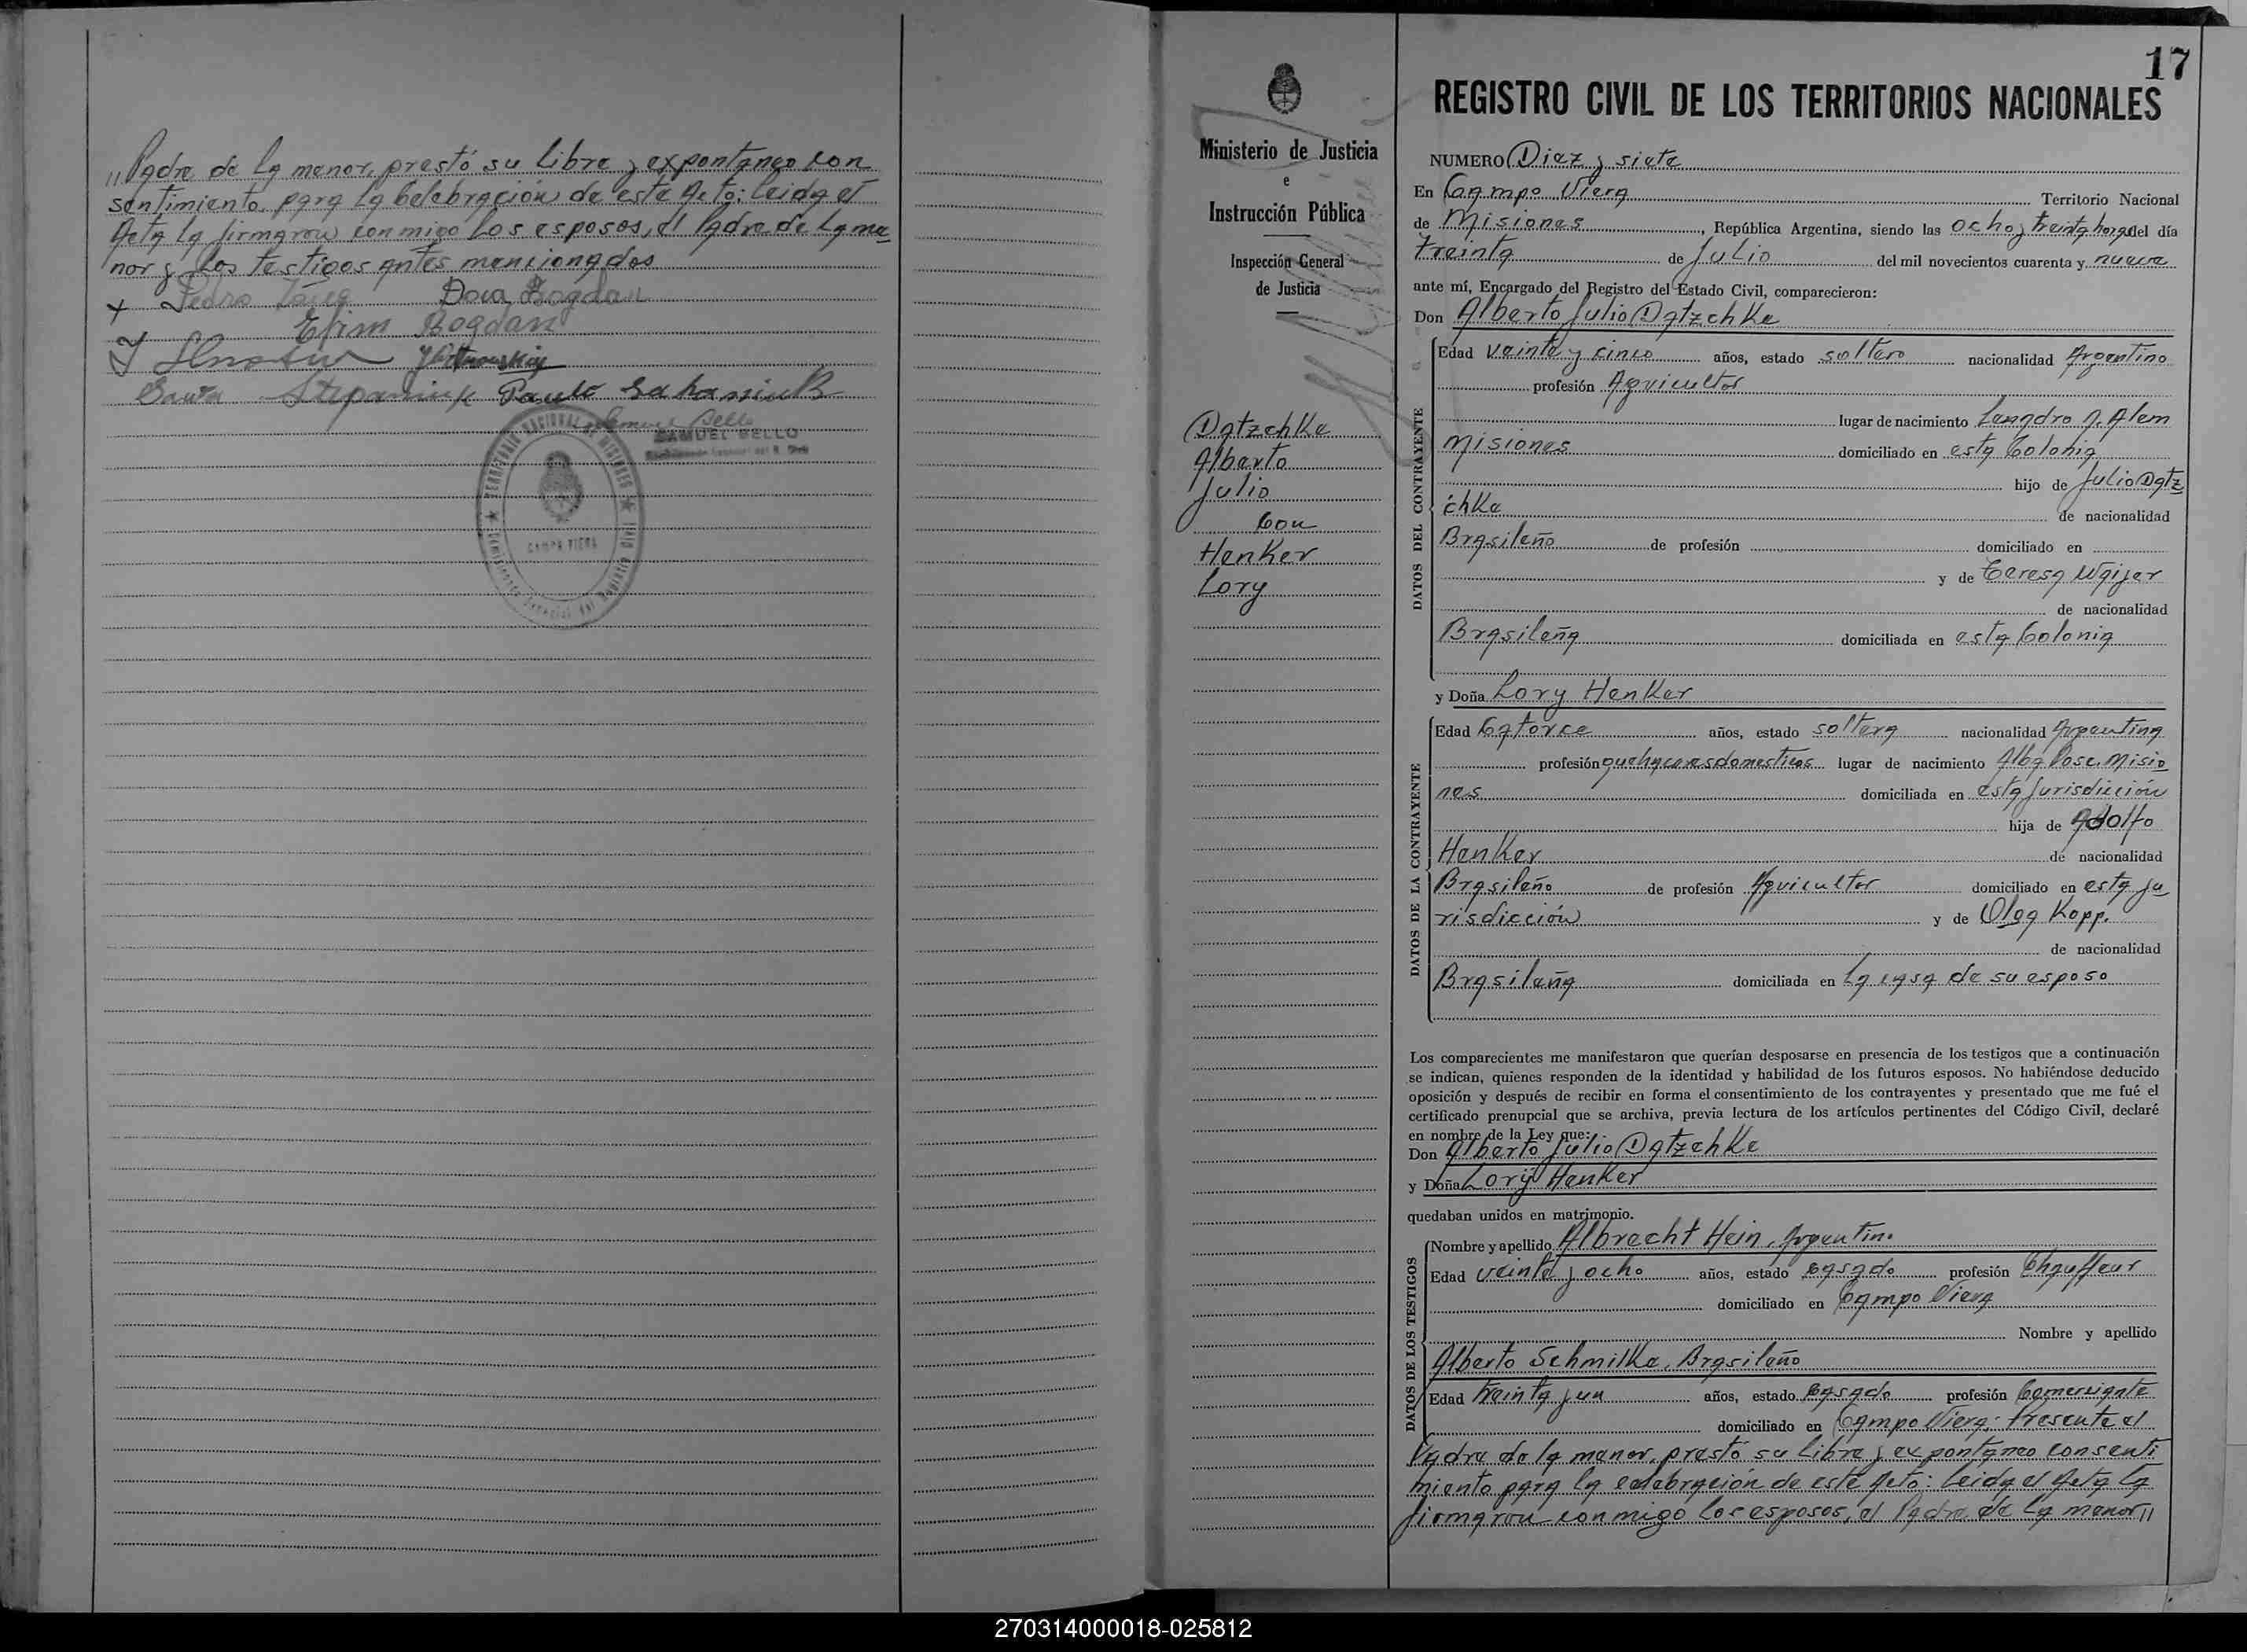 "Padre de la menor, prestó su libre y expontaneo con
sentimiento para la Celebración de este Acto: Leida el
Acta la firmaron conmigo los esposos, el Padre de la me
nor y los testigos antes mencionados
+ Pedro Dora Bogdan
Efim Bogdan
Stepaniuk Pawlo
Samuel Bello
SAMUEL BELLO
TERRITORIO NACIONAL DE MISIONES
CAMPO VIERA
17
REGISTRO CIVIL DE LOS TERRITORIOS NACIONALES
Ministerio de Justicia
e
Instrucción Pública
Inspección General
de Justicia
Datzchke
Alberto
Julio
Con
Henker
Lory
NUMERO Diez y siete
En Campo Viera Territorio Nacional
de Misiones, República Argentina, siendo las ocho y treinta horas del día
treinta de Julio del mil novecientos cuarenta y nueve
ante mí, Encargado del Registro del Estado Civil, comparecieron:
Don Alberto Julio Datzchke
DATOS DEL CONTRAYENTE
Edad veinte y cinco años, estado soltero nacionalidad Argentino
profesión Agricultor
lugar de nacimiento Leandro N. Alem
Misiones domiciliado en esta Colonia
hijo de Julio Datz
chke de nacionalidad
Brasileño de profesión domiciliado en
y de Teresa Waijer
de nacionalidad
Brasileña domiciliada en esta Colonia
y Doña Lory Henker
DATOS DE LA CONTRAYENTE
Edad Catorce años, estado soltera nacionalidad Argentina
profesión quehaceres domesticos lugar de nacimiento Alba Posse. Misio
nes domiciliada en esta Jurisdicción
hija de Adolfo
Henker de nacionalidad
Brasileño de profesión Agricultor domiciliado en esta ju
risdicción y de Olga Kopp.
de nacionalidad
Brasileña domiciliada en la casa de su esposo
Los comparecientes me manifestaron que querían desposarse en presencia de los testigos que a continuación
se indican, quienes responden de la identidad y habilidad de los futuros esposos. No habiéndose deducido
oposición y después de recibir en forma el consentimiento de los contrayentes y presentado que me fué el
certificado prenupcial que se archiva, previa lectura de los artículos pertinentes del Código Civil, declaré
en nombre de la Ley que:
Don Alberto Julio Datzchke
y Doña Lory Henker
quedaban unidos en matrimonio.
DATOS DE LOS TESTIGOS
Nombre y apellido Albrecht Hein, Argentino
Edad veinte y ocho años, estado Casado profesión Chauffeur
domiciliado en Campo Viera
Nombre y apellido
Alberto Schmilke, Brasileño
Edad treinta y un años, estado Casado profesión Comerciante
domiciliado en Campo Viera; Presente el
Padre de la menor, prestó su libre y expontaneo consenti
miento para la celebración de este Acto: Leida el Acta la
firmaron conmigo los esposos, el Padre de la menor"
270314000018-025812